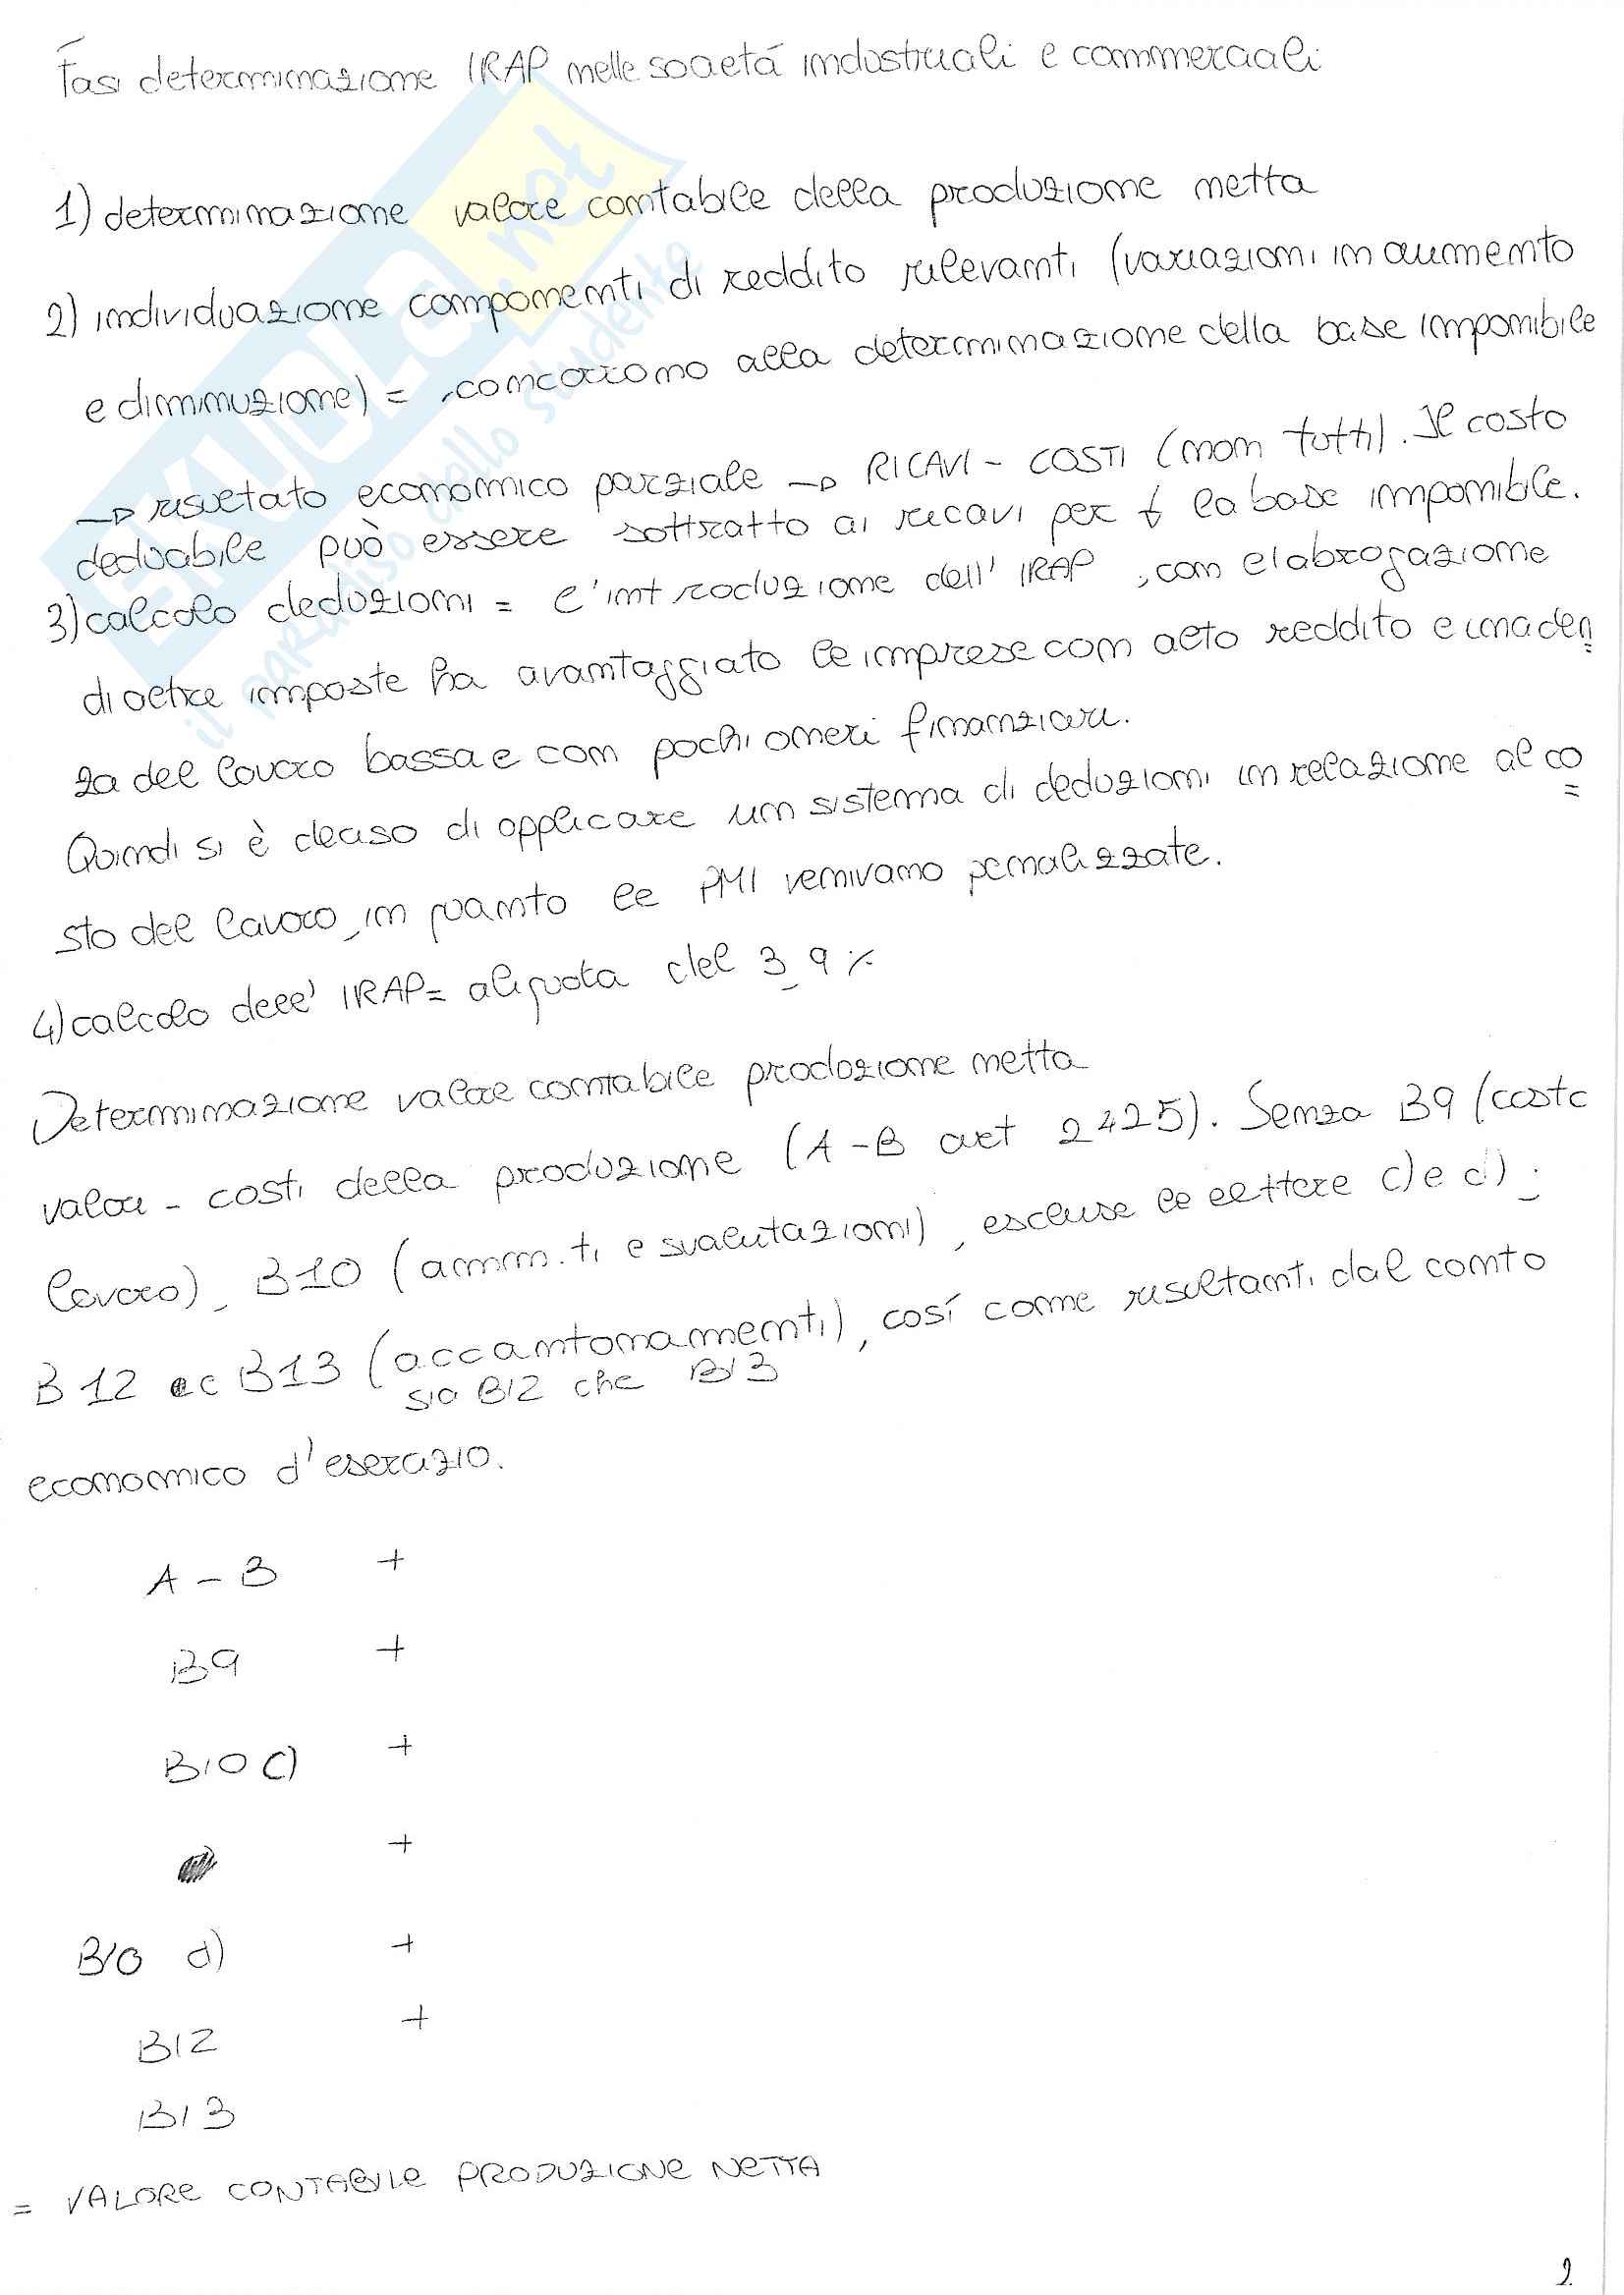 Fasi determinazione IRAP nelle società industriali e commerciali
1) determinazione valore contabile della produzione netta
2) individuazione componenti di reddito rilevanti (variazioni in aumento
e diminuzione) = concorrono alla determinazione della base imponibile
→ risultato economico parziale → RICAVI - COSTI (non tutti). Il costo
deducibile può essere sottratto ai ricavi per ↓ la base imponibile.
3) calcolo deduzioni = l'introduzione dell'IRAP, con el abrogazione
di altre imposte ha avantaggiato le imprese con alto reddito e inaden
za del lavoro bassa e con pochi oneri finanziari.
Quindi si è deciso di applicare un sistema di deduzioni in relazione al co
sto del lavoro, in quanto le PMI venivano penalizzate.
4) calcolo dell'IRAP = aliquota del 3,9%
Determinazione valore contabile produzione netta
valori - costi della produzione (A-B art 2425). Senza B9 (costo
lavoro), B10 (amm.ti e svalutazioni), escluse le lettere c) e d);
B12 e B13 (accantonamenti), così come risultanti dal conto
sia B12 che B13
economico d'esercizio.
A - B +
B9 +
B10 c) +
+
B10 d) +
B12 +
B13
= VALORE CONTABILE PRODUZIONE NETTA
2
SKUOLA.net
il paradiso dello studente